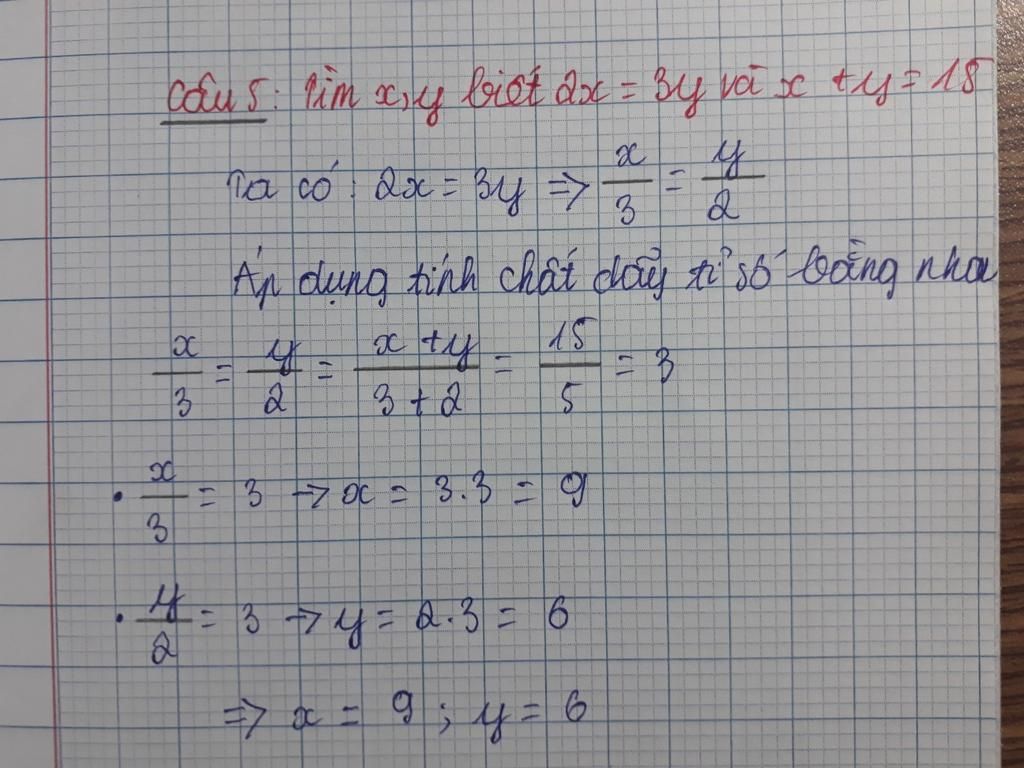 Câu 5: Tìm x, y biết 2x = 3y và x + y = 15
Ta có: 2x = 3y => x/3 = y/2
Áp dụng tính chất dãy tỉ số bằng nhau
x/3 = y/2 = x + y/3 + 2 = 15/5 = 3
• x/3 = 3 → x = 3.3 = 9
• y/2 = 3 → y = 2.3 = 6
=> x = 9; y = 6